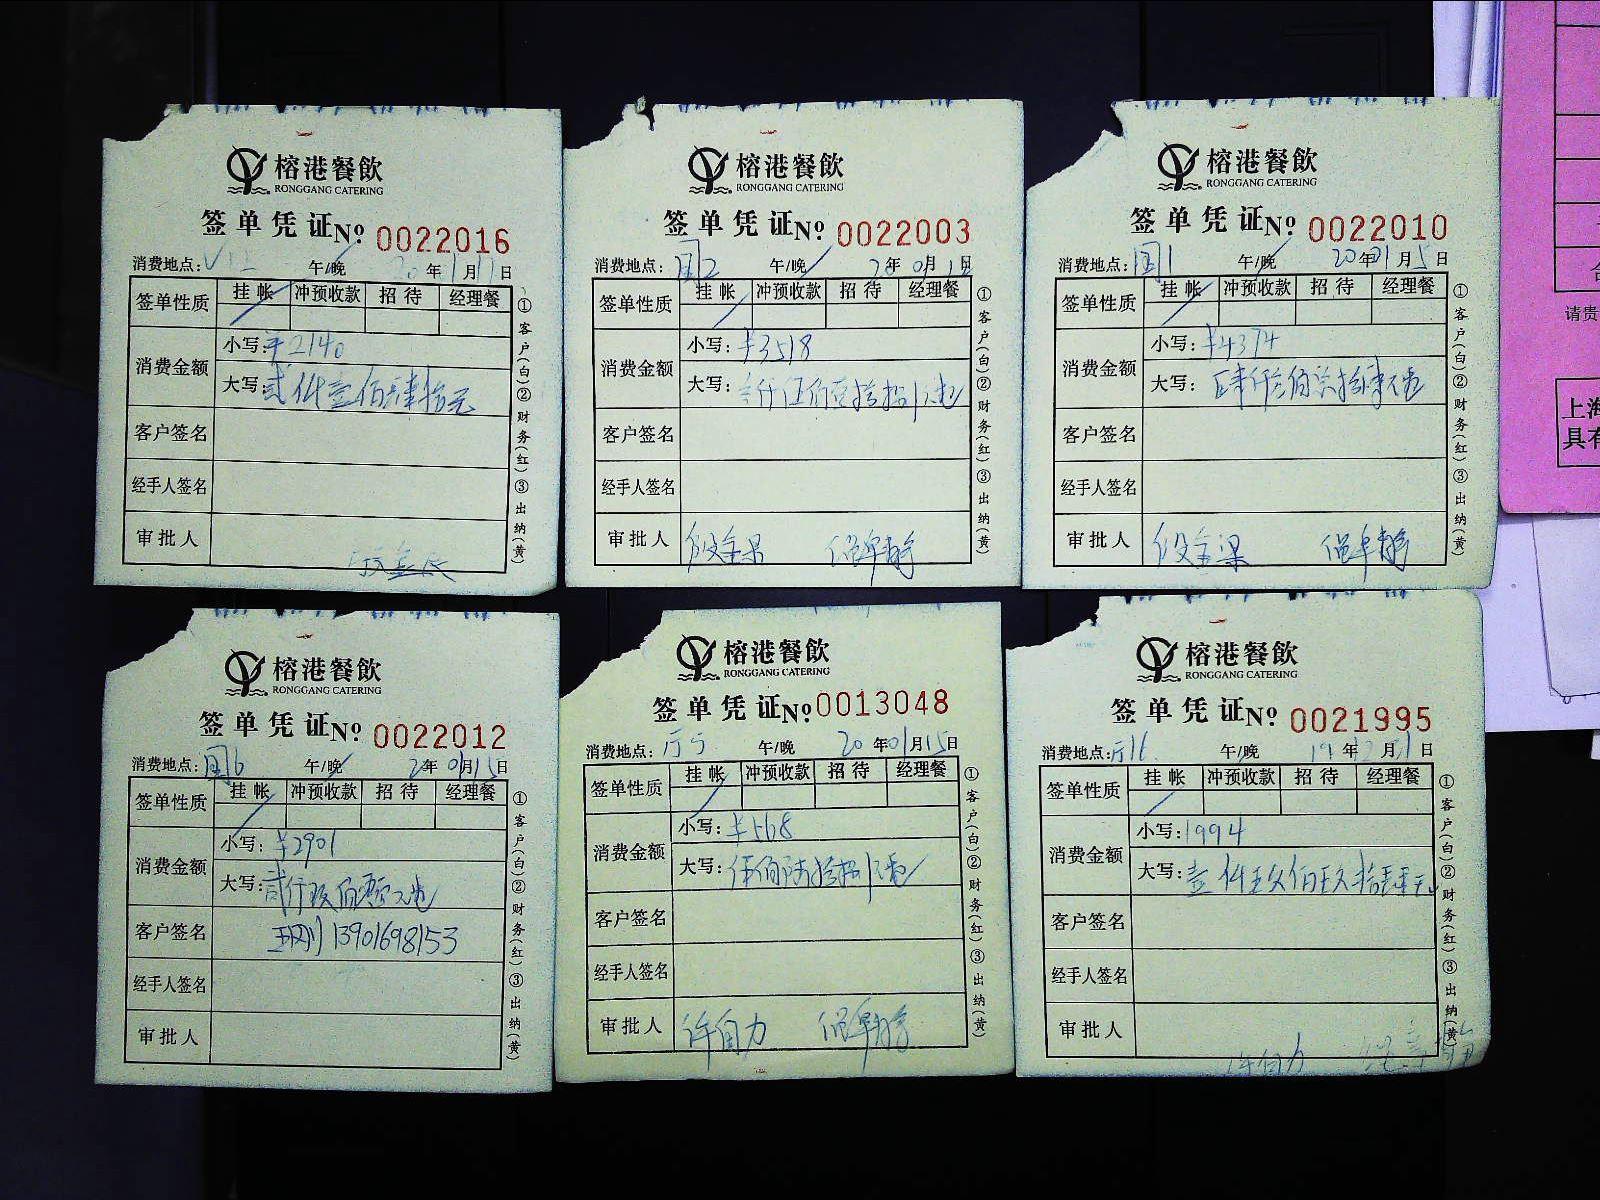 榕港餐飲
RONGGANG CATERING
签单凭证 Nº 0022016
消费地点: 午/晚 20年1月11日
签单性质 挂帐 冲预收款 招待 经理餐
消费金额
小写: ¥2140
大写: 贰仟壹佰肆拾元
客户签名
经手人签名
审批人
①客户(白)②财务(红)③出纳(黄)
榕港餐飲
RONGGANG CATERING
签单凭证 Nº 0022003
消费地点: 国2 午/晚 20年01月1日
签单性质 挂帐 冲预收款 招待 经理餐
消费金额
小写: ¥3518
大写: 叁仟伍佰壹拾捌元
客户签名
经手人签名
审批人
①客户(白)②财务(红)③出纳(黄)
榕港餐飲
RONGGANG CATERING
签单凭证 Nº 0022010
消费地点: 国1 午/晚 20年01月15日
签单性质 挂帐 冲预收款 招待 经理餐
消费金额
小写: ¥4374
大写: 肆仟叁佰柒拾肆元
客户签名
经手人签名
审批人
①客户(白)②财务(红)③出纳(黄)
请贵
上海
具有
榕港餐飲
RONGGANG CATERING
签单凭证 Nº 0022012
消费地点: 国6 午/晚 2年01月15日
签单性质 挂帐 冲预收款 招待 经理餐
消费金额
小写: ¥2901
大写: 贰仟玖佰零元
客户签名 王刚 13901698153
经手人签名
审批人
①客户(白)②财务(红)③出纳(黄)
榕港餐飲
RONGGANG CATERING
签单凭证 Nº 0013048
消费地点: 厅5 午/晚 20年01月15日
签单性质 挂帐 冲预收款 招待 经理餐
消费金额
小写: ¥568
大写: 伍佰陆拾捌元
客户签名
经手人签名
审批人 许自力
①客户(白)②财务(红)③出纳(黄)
榕港餐飲
RONGGANG CATERING
签单凭证 Nº 0021995
消费地点: 厅16 午/晚 19年12月31日
签单性质 挂帐 冲预收款 招待 经理餐
消费金额
小写: 1994
大写: 壹仟玖佰玖拾肆元
客户签名
经手人签名
审批人 许自力
①客户(白)②财务(红)③出纳(黄)